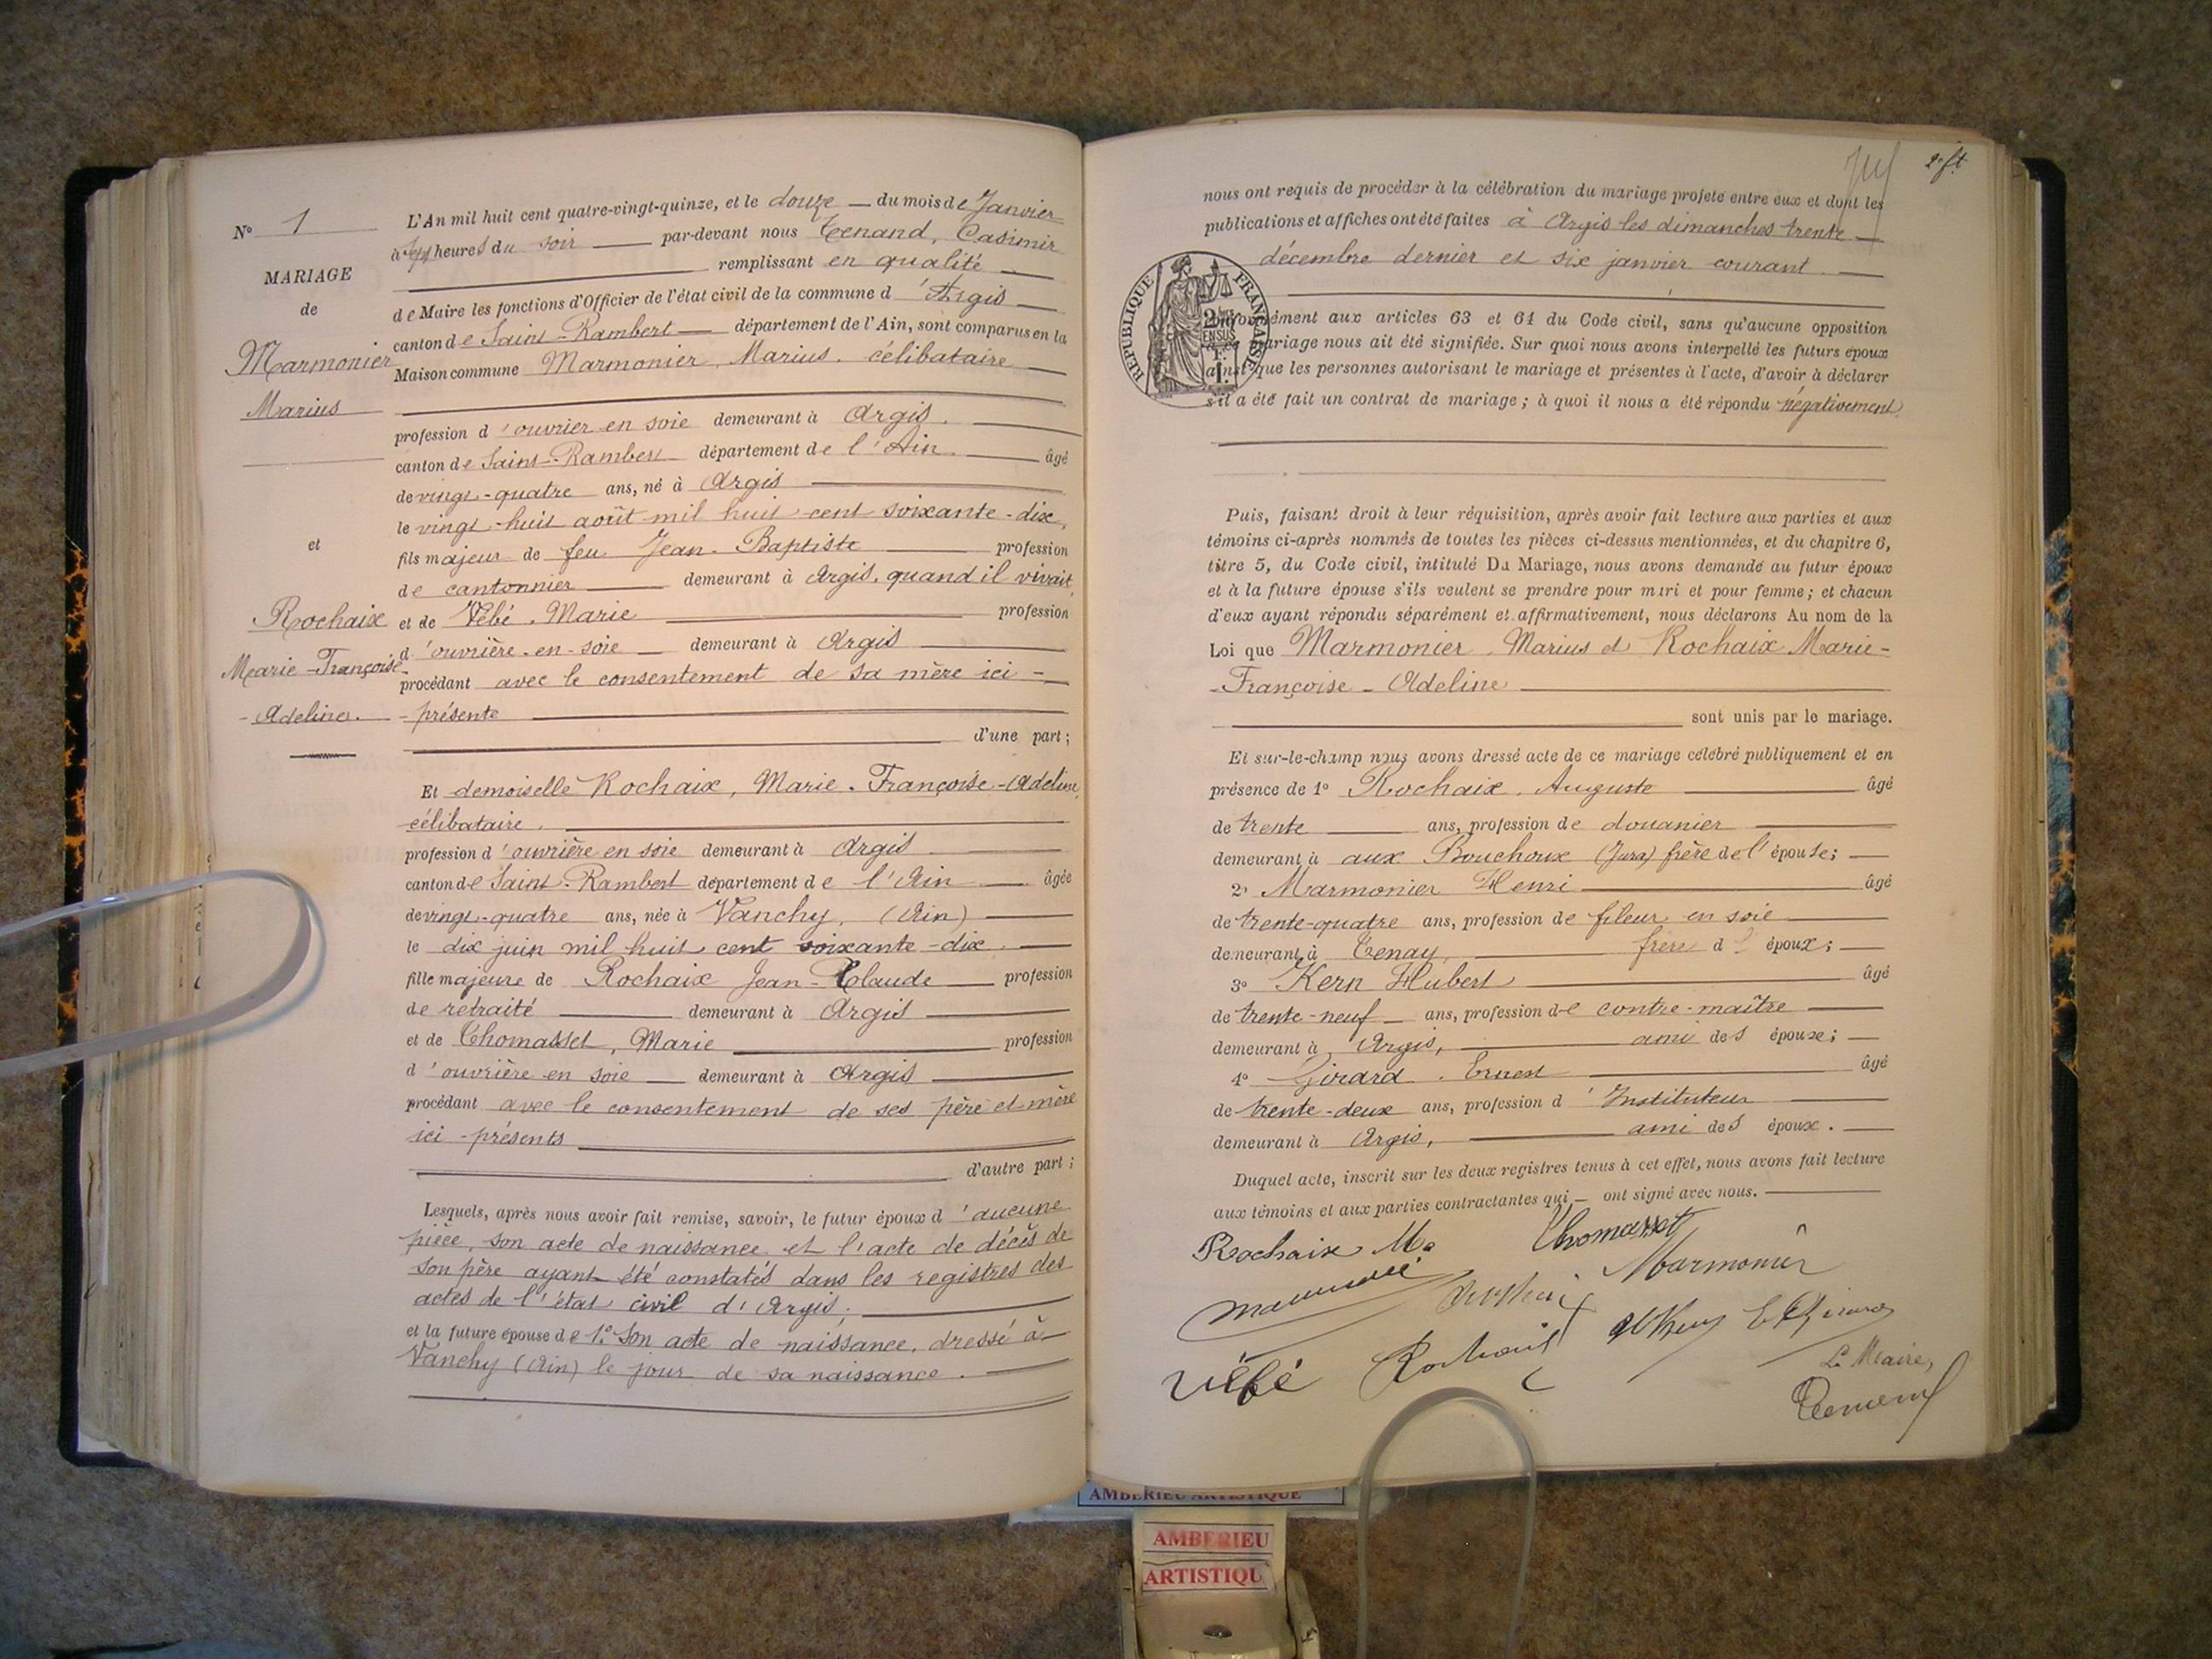 N° 1
MARIAGE
de
Marmonier
Marius
et
Rochaix
Marie-Françoise-
-Adeline.
L'An mil huit cent quatre-vingt-quinze, et le douze du mois de Janvier
à sept heures du soir par-devant nous Tenand, Casimir
remplissant en qualité
de Maire les fonctions d'Officier de l'état civil de la commune d'Argis
canton de Saint-Rambert département de l'Ain, sont comparus en la
Maison commune Marmonier, Marius, célibataire
profession d'ouvrier en soie demeurant à Argis.
canton de Saint-Rambert département de l'Ain. âgé
de vingt-quatre ans, né à Argis
le vingt-huit août mil huit cent soixante-dix,
fils majeur de feu Jean-Baptiste profession
de cantonnier demeurant à Argis, quand il vivait,
et de Vébé, Marie profession
d'ouvrière-en-soie demeurant à Argis
procédant avec le consentement de sa mère ici-
-présente
d'une part;
Et demoiselle Rochaix, Marie-Françoise-Adeline,
célibataire.
profession d'ouvrière en soie demeurant à Argis
canton de Saint-Rambert département de l'Ain âgée
de vingt-quatre ans, née à Vanchy, (Ain)
le dix juin mil huit cent soixante-dix.
fille majeure de Rochaix Jean-Claude profession
de retraité demeurant à Argis
et de Thomasset, Marie profession
d'ouvrière en soie demeurant à Argis
procédant avec le consentement de ses père et mère
ici-présents
d'autre part;
Lesquels, après nous avoir fait remise, savoir, le futur époux d'aucune
pièce, son acte de naissance et l'acte de décès de
son père ayant été constatés dans les registres des
actes de l'état civil d'Argis;
et la future épouse de 1° Son acte de naissance, dressé à
Vanchy (Ain) le jour de sa naissance.
2e ft
nous ont requis de procéder à la célébration du mariage projeté entre eux et dont les
publications et affiches ont été faites à Argis les dimanches trente
décembre dernier et six janvier courant.
RÉPUBLIQUE FRANÇAISE
conformément aux articles 63 et 64 du Code civil, sans qu'aucune opposition
mariage nous ait été signifiée. Sur quoi nous avons interpellé les futurs époux
ainsi que les personnes autorisant le mariage et présentes à l'acte, d'avoir à déclarer
s'il a été fait un contrat de mariage; à quoi il nous a été répondu négativement.
Puis, faisant droit à leur réquisition, après avoir fait lecture aux parties et aux
témoins ci-après nommés de toutes les pièces ci-dessus mentionnées, et du chapitre 6,
titre 5, du Code civil, intitulé Du Mariage, nous avons demandé au futur époux
et à la future épouse s'ils veulent se prendre pour mari et pour femme; et chacun
d'eux ayant répondu séparément et affirmativement, nous déclarons Au nom de la
Loi que Marmonier, Marius et Rochaix Marie-
-Françoise-Adeline
sont unis par le mariage.
Et sur-le-champ nous avons dressé acte de ce mariage célébré publiquement et en
présence de 1° Rochaix, Auguste âgé
de trente ans, profession de douanier
demeurant à aux Bouchoux (Jura) frère de l'épouse;
2° Marmonier Henri âgé
de trente-quatre ans, profession de fileur en soie
demeurant à Tenay, frère d l' époux;
3° Kern Hubert âgé
de trente-neuf ans, profession de contre-maître
demeurant à Argis, ami des époux;
4° Girard, Ernest âgé
de trente-deux ans, profession d'Instituteur
demeurant à Argis, ami des époux.
Duquel acte, inscrit sur les deux registres tenus à cet effet, nous avons fait lecture
aux témoins et aux parties contractantes qui ont signé avec nous.
Rochaix M. Thomasset
Marmonier
Vébé Rochaix H Kern E Girard
Le Maire,
Tenand
AMBERIEU ARTISTIQUE
AMBERIEU
ARTISTIQU